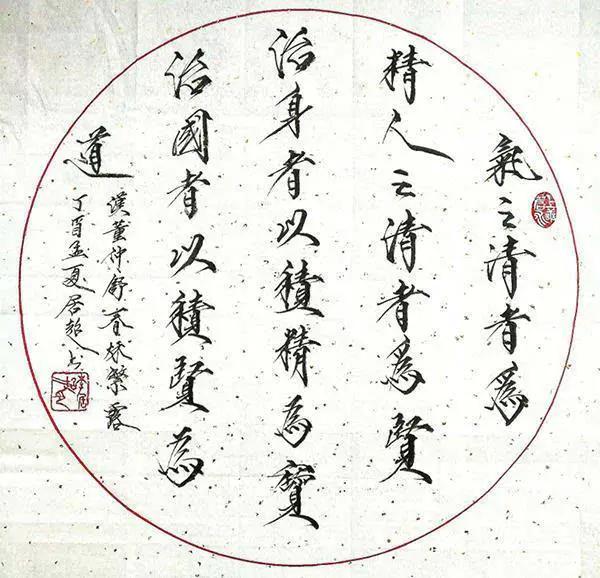 氣之清者為
精人之清者為賢
治身者以積精為寶
治國者以積賢為
道
漢董仲舒春秋繁露
丁酉孟夏居超書